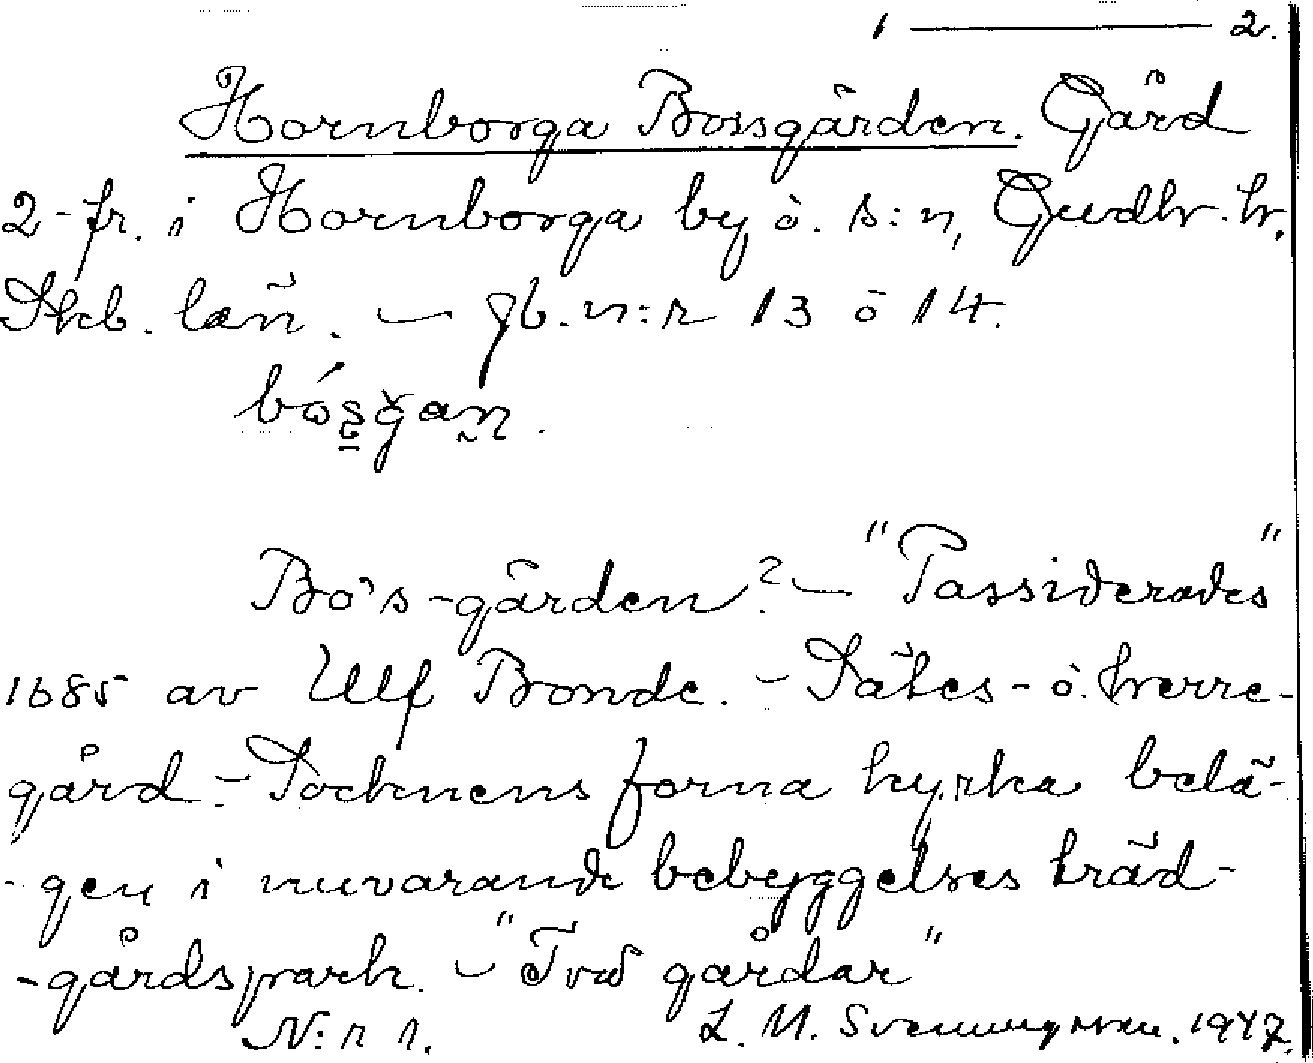 1 — 2.
Hornborga Bossgården. Gård
2-fr. i Hornborga by o. s:n, Gudh. hr.
Skb. län. — Jb. n:r 13 o 14.
bósgan.
Bo's-gården? — "Passiderades"
1685 av Ulf Bonde. - Sätes- o. herre-
gård. - Socknens forna kyrka belä-
-gen i nuvarande bebyggelses träd-
-gårdspark. - "Två gårdar"
N:r 1. L. M. Svenungsson. 1947.